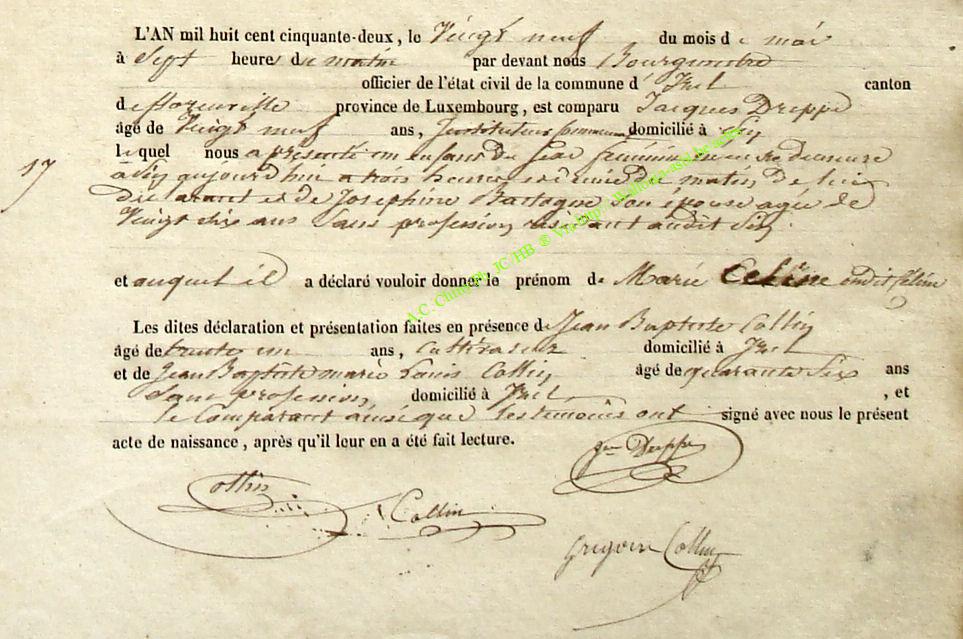 L'AN mil huit cent cinquante-deux, le Vingt neuf du mois de mai
à Sept heures du matin par devant nous Bourgmestre
officier de l'état civil de la commune d' Izel canton
de florenville province de Luxembourg, est comparu Jacques Dreppe
âgé de Vingt neuf ans, Instituteur Communal domicilié à
lequel nous a présenté un enfant du Sexe féminin née en sa demeure
17
aujourd'hui a trois heures et demie du matin de lui
déclarant et de Joséphine Bastogne Son épouse agée de
Vingt Six ans Sans profession résidant audit
et auquel il a déclaré vouloir donner le prénom de Marie Celine
Les dites déclaration et présentation faites en présence de Jean Baptiste Collin
âgé de trente un ans, Cultivateur domicilié à Izel
et de Jean Baptiste marie Louis Collin âgé de quarante Six ans
Sans profession, domicilié à Izel, et
le Comparant ainsi que les témoins ont signé avec nous le présent
acte de naissance, après qu'il leur en a été fait lecture.
Dreppe
Collin
Collin
Gregoire Collin